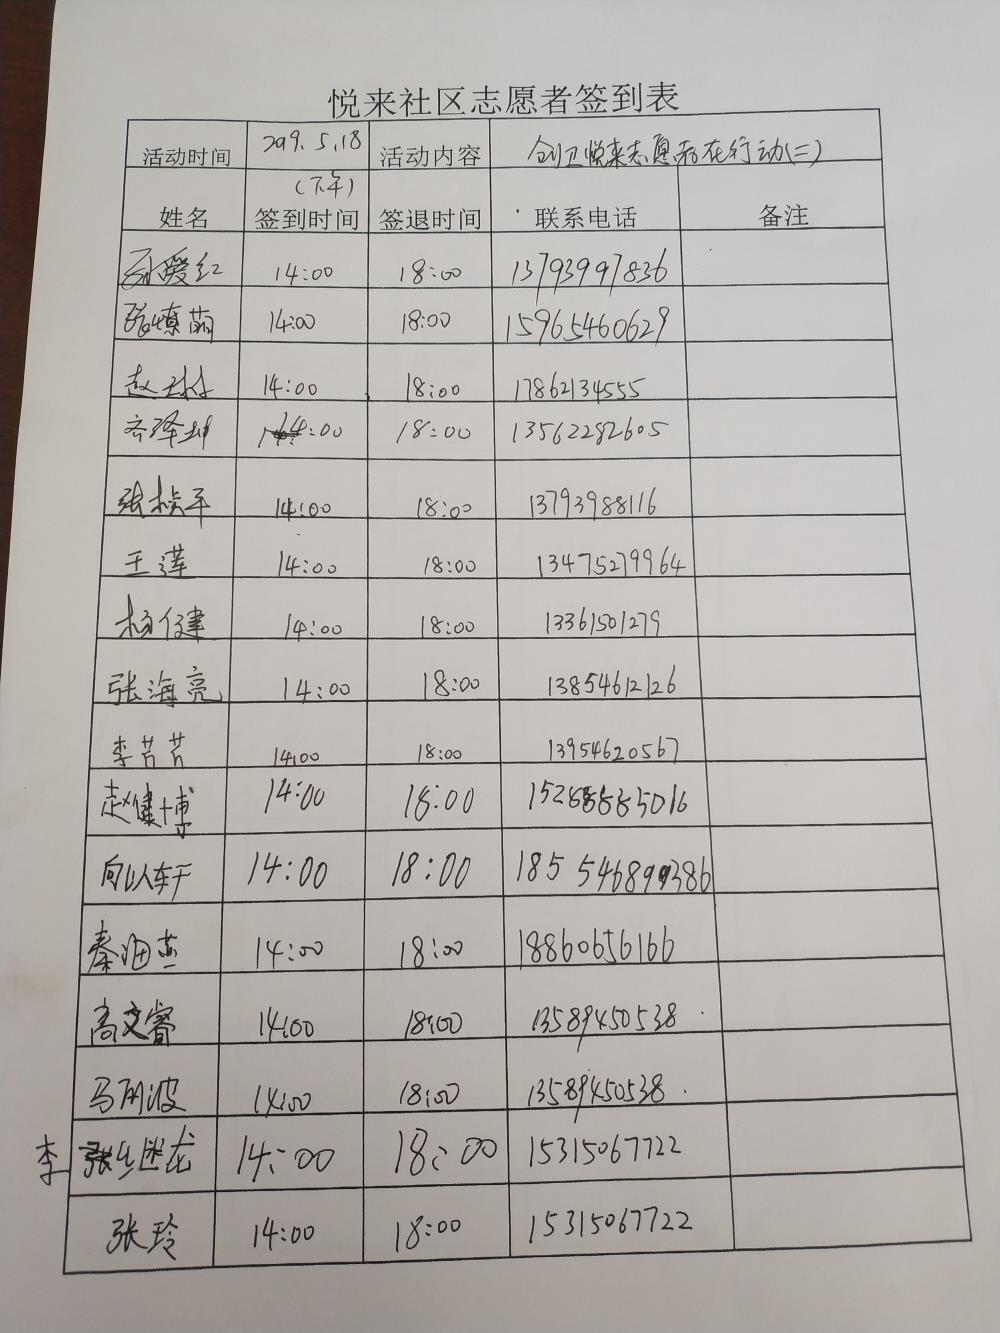 悦来社区志愿者签到表
活动时间 2019.5.18 活动内容 创卫悦来志愿者在行动(二)
(下午)
姓名 签到时间 签退时间 联系电话 备注
爱红 14:00 18:00 13793997836
14:00 18:00 15965460629
赵 14:00 18:00 17862134555
齐泽 14:00 18:00 13562282605
张 平 14:00 18:00 13793988116
王莲 14:00 18:00 13475279964
杨健 14:00 18:00 13361501279
张海亮 14:00 18:00 13854612126
李芳芳 14:00 18:00 13954620567
赵健博 14:00 18:00
向以轩 14:00 18:00
秦海燕 14:00 18:00 18860656166
高文睿 14:00 18:00 13589450538
马丽波 14:00 18:00 13589450538
李 龙 14:00 18:00 15315067722
张玲 14:00 18:00 15315067722